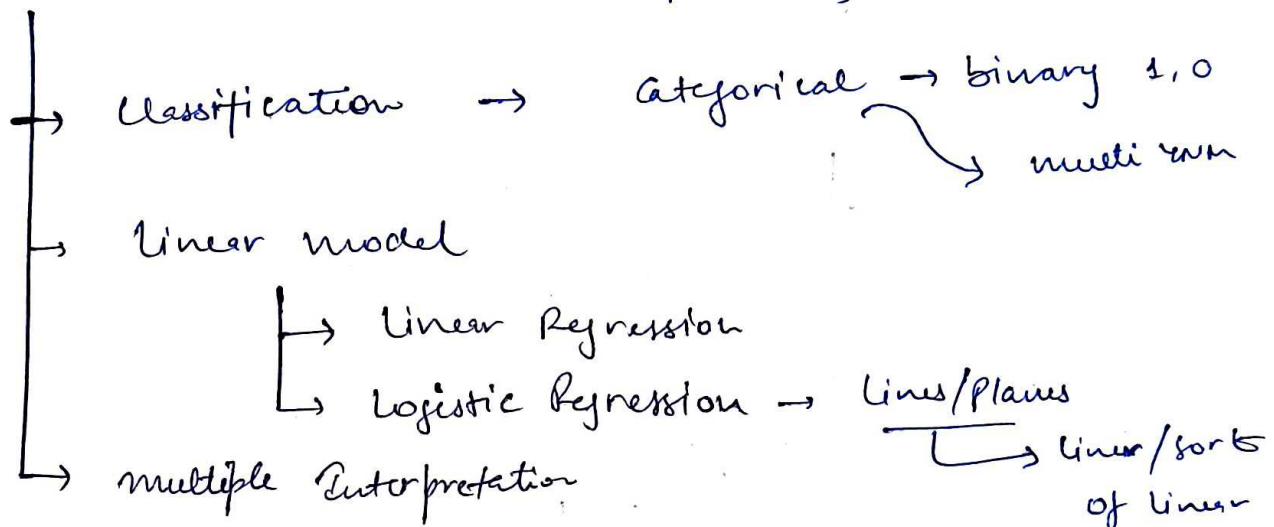 Classification → Categorical → binary 1, 0
multi
Linear model
Linear Regression
Logistic Regression → Lines/Planes
linear/sorts
of linear
multiple Interpretation